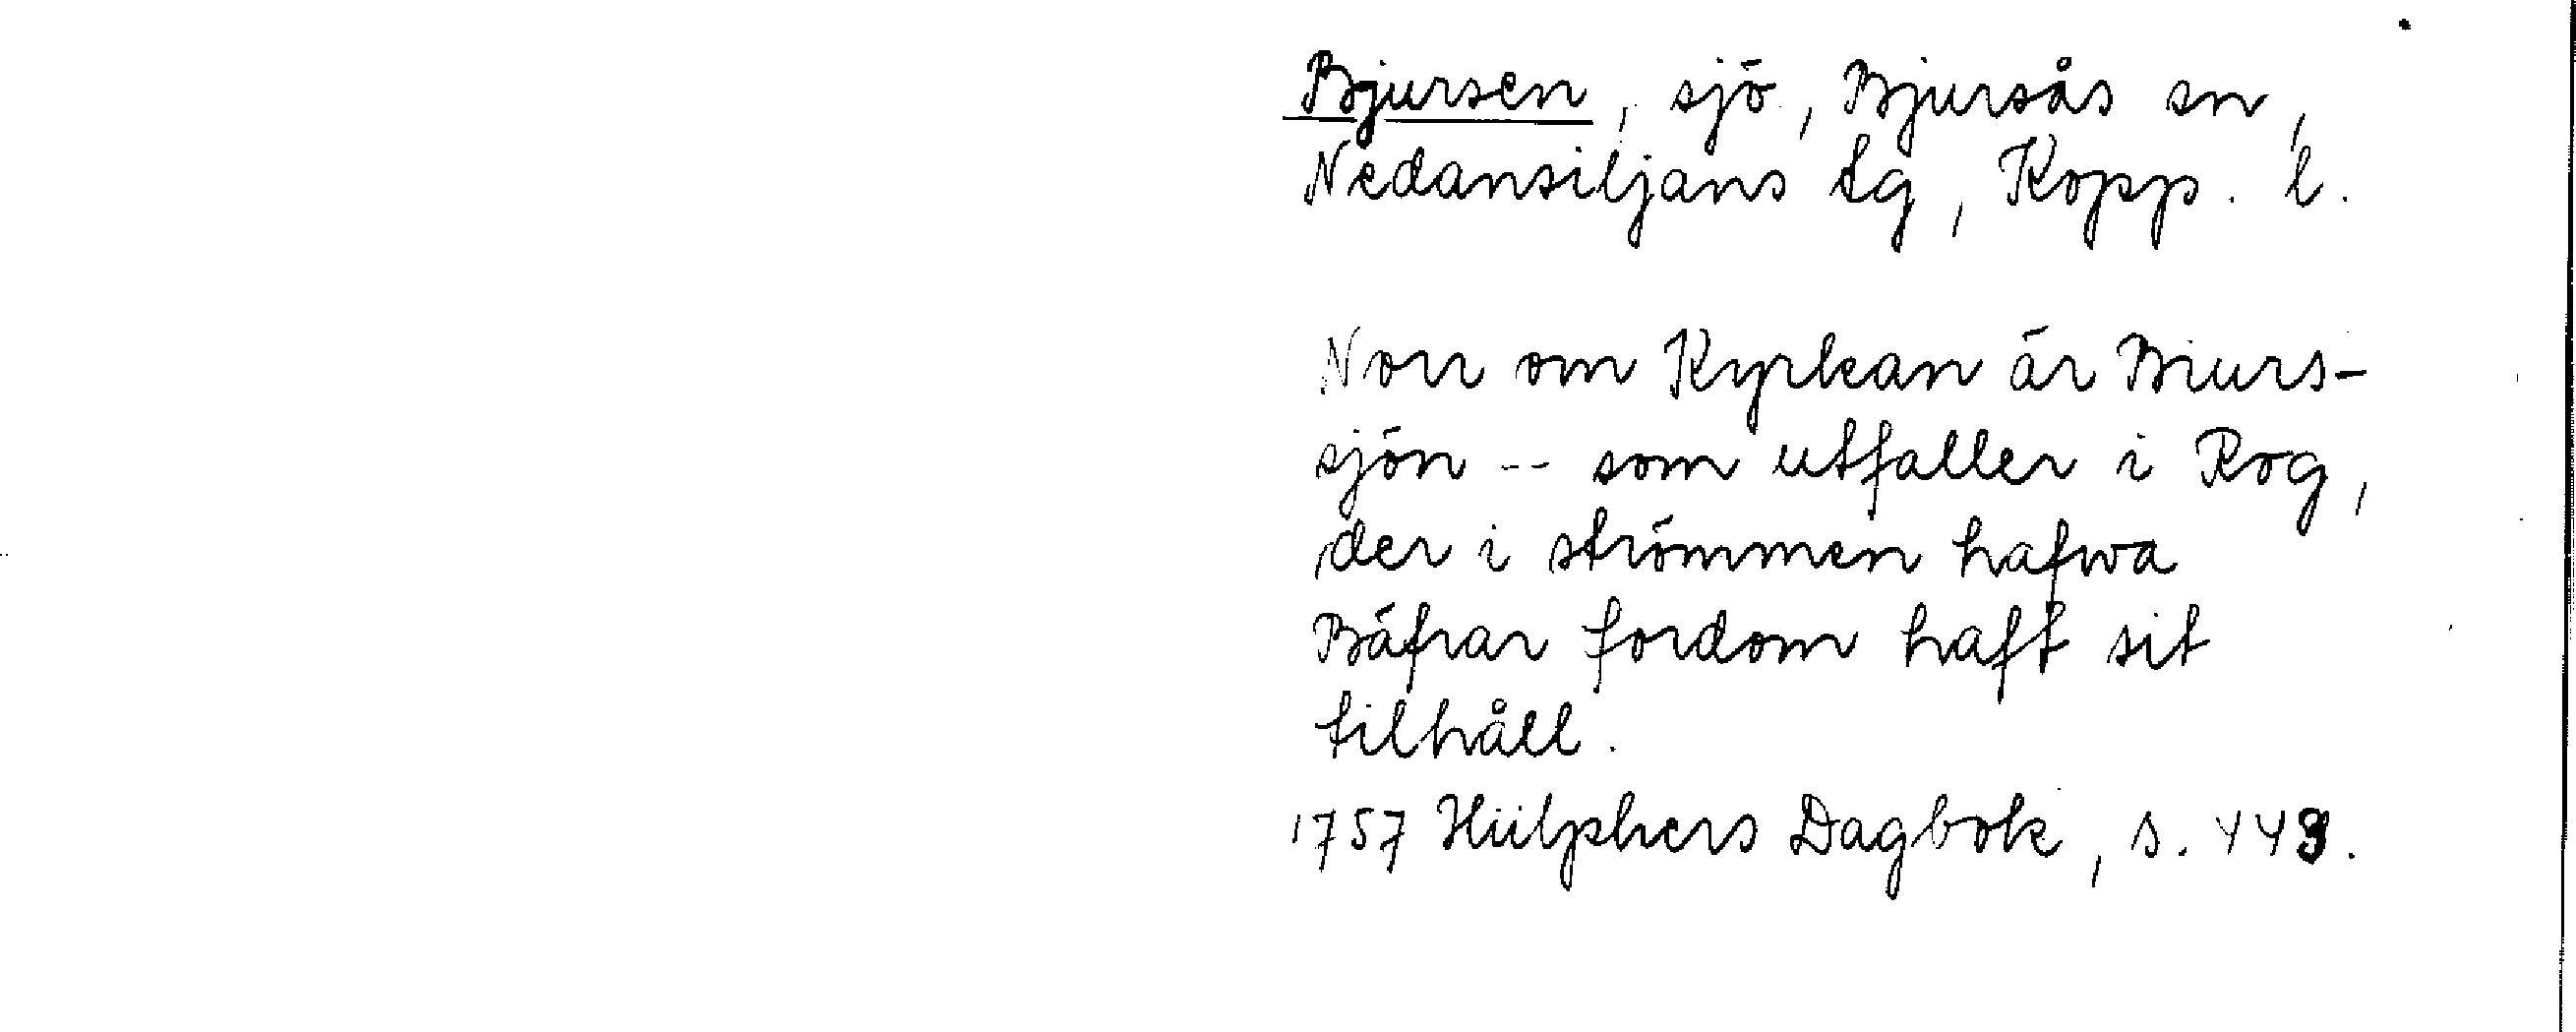 Bjursen, sjö, Bjursås sn,
Nedansiljans tg, Kopp. l.
Norr om Kyrkan är Biurs-
sjön -- som utfaller i Rog,
der i strömmen hafwa
Bäfrar fordom haft sit
tilhåll.
1757 Hülphers Dagbok, s. 443.